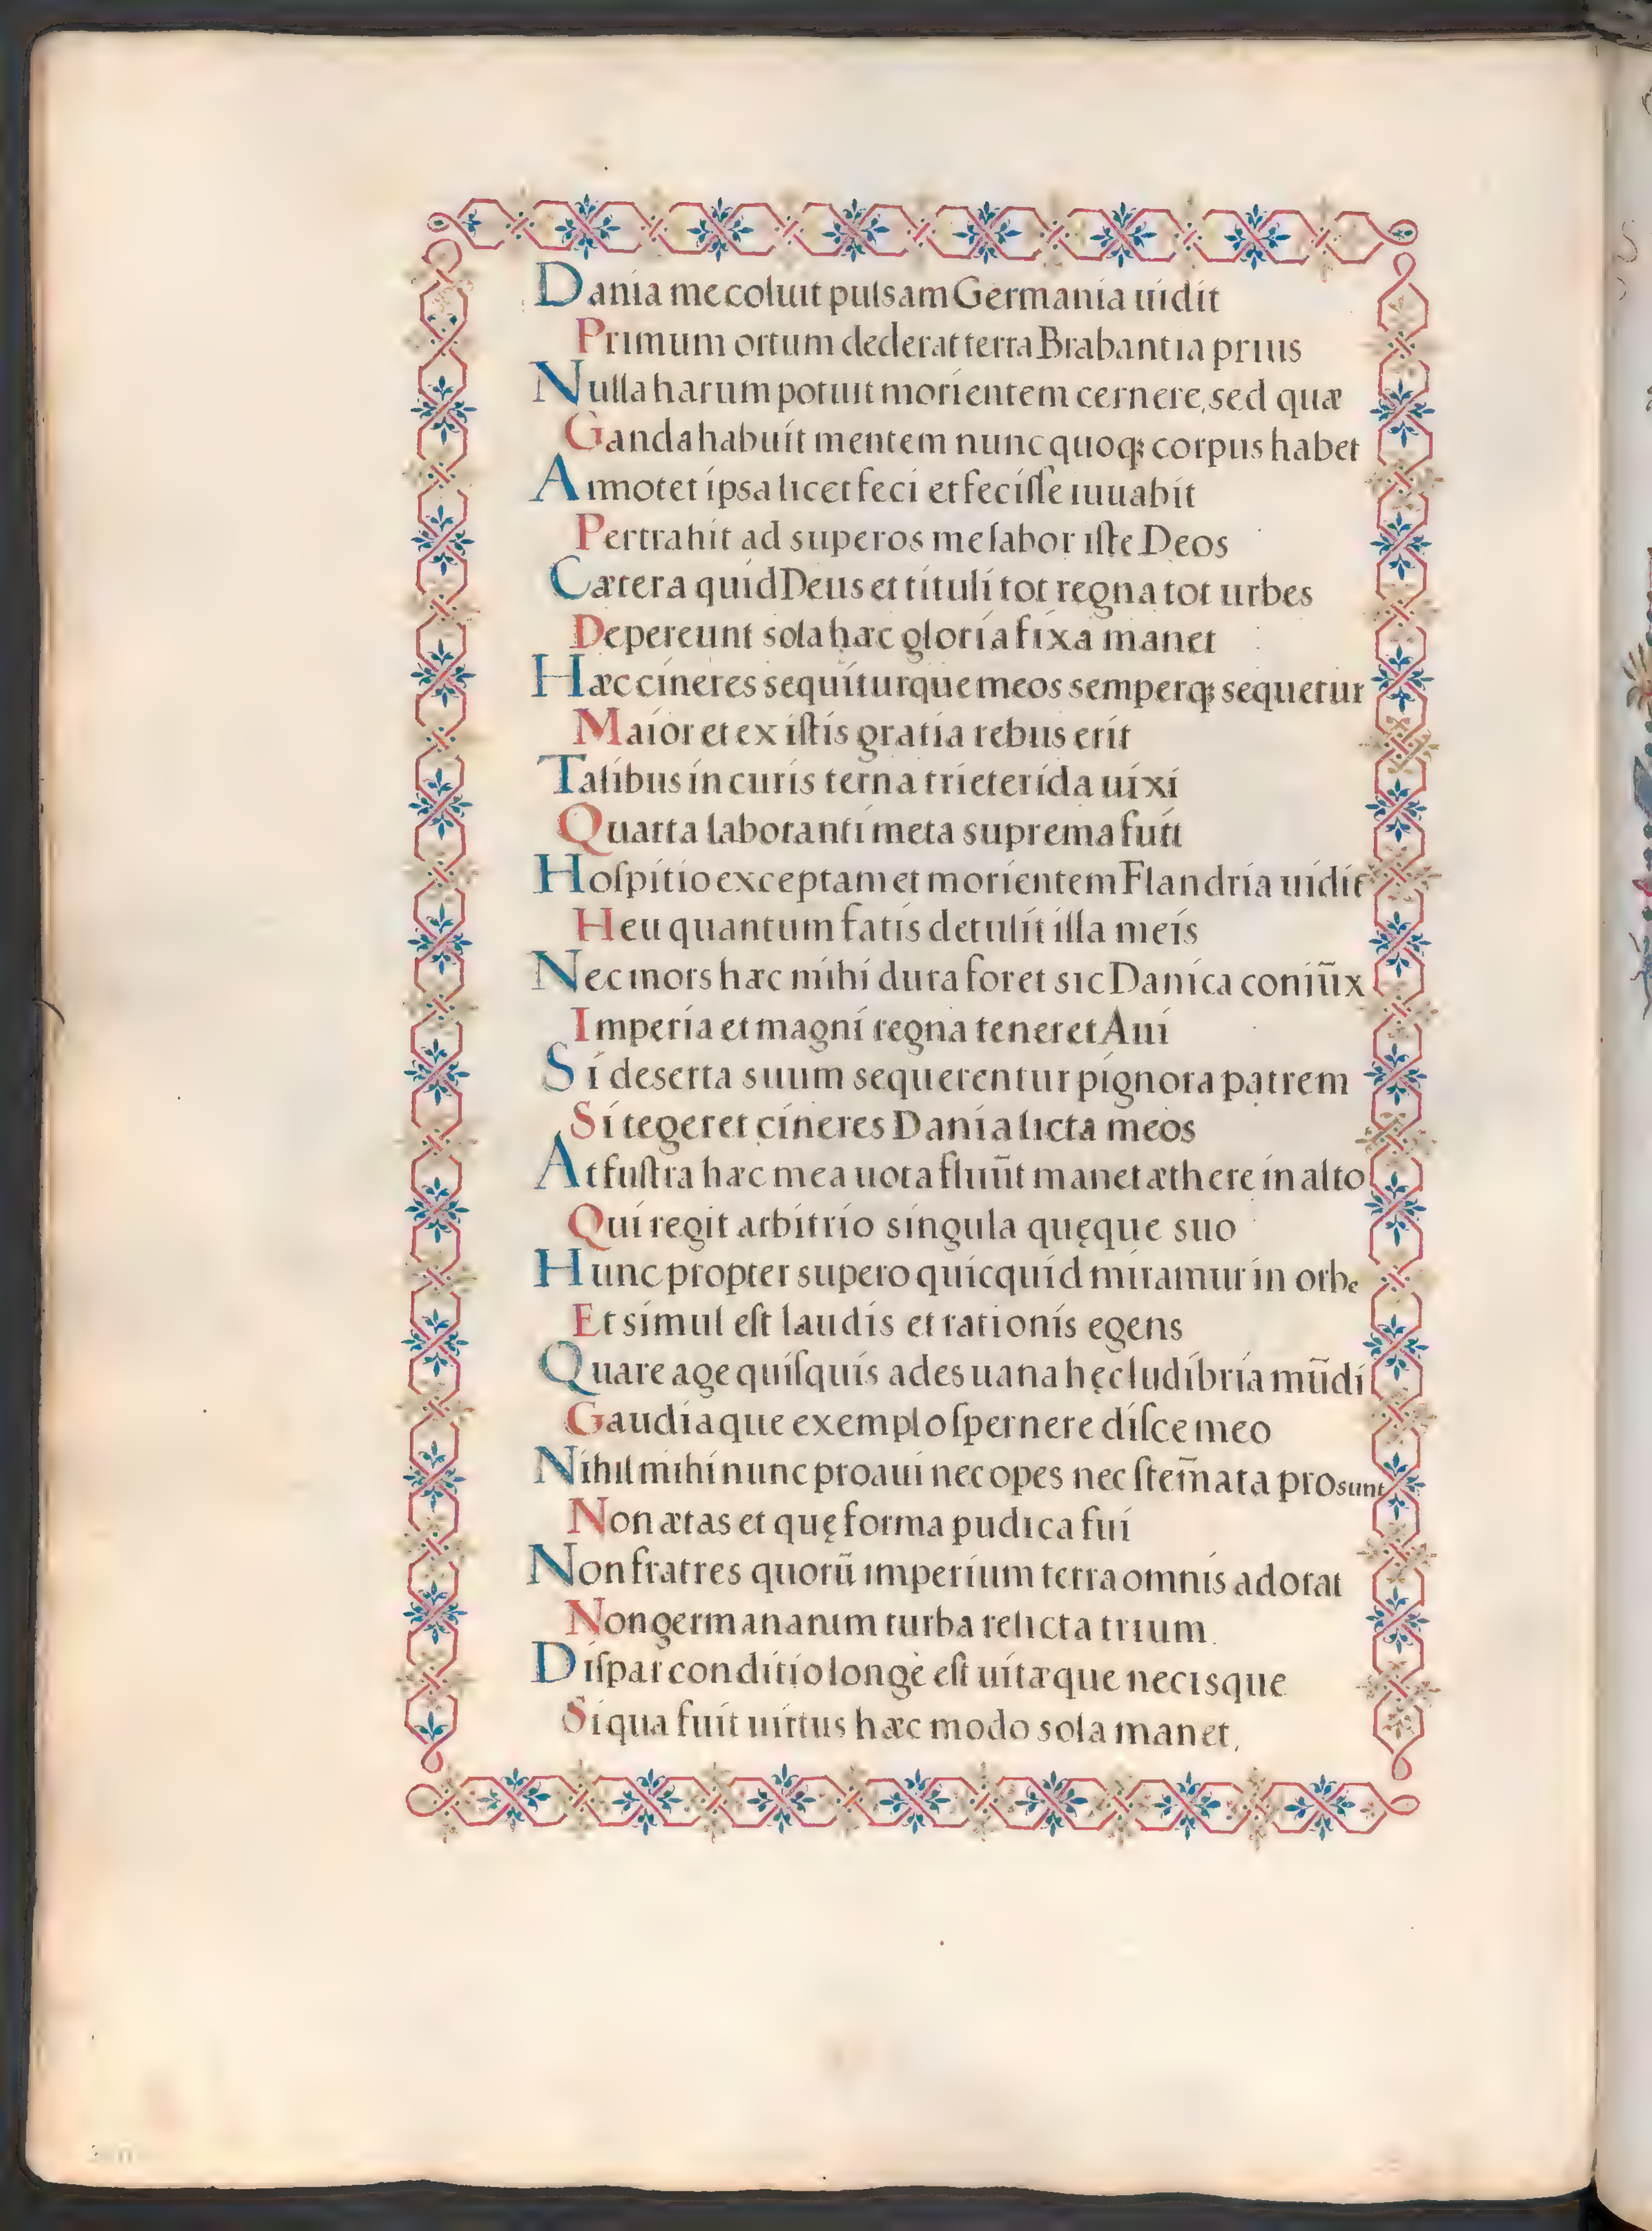 Dania me coluit pulsam Germania uidit
Primum ortum dederat terra Brabantia prius
Nulla harum potuit morientem cernere, sed quæ
Ganda habuit mentem nunc quoq; corpus habet
Annotet ipsa licet feci et feciſſe iuuabit
Pertrahit ad superos me labor iſte Deos
Cætera quid Deus et tituli tot regna tot urbes
Depereunt sola hæc gloria fixa manet
Hæc cineres sequiturque meos semperq; sequetur
Maior et ex iſtis gratia rebus erit
Talibus in curis terna trieterida uixi
Quarta laboranti meta suprema fuit
Hoſpitio exceptam et morientem Flandria uidit
Heu quantum fatis detulit illa meis
Nec mors hæc mihi dura foret sic Danica coniūx
Imperia et magni regna teneret Aui
Si deserta suum sequerentur pignora patrem
Si tegeret cineres Dania licta meos
At fuſtra hæc mea uota fluūt manet æthere in alto
Qui regit arbitrio singula quęque suo
Hunc propter supero quicquid miramur in orbe
Et simul eſt laudis et rationis egens
Quare age quiſquis ades uana hęc ludibria mūdi
Gaudiaque exemplo ſpernere diſce meo
Nihil mihi nunc proaui nec opes nec ſtem̄ata prosunt
Non ætas et quę forma pudica fui
Non fratres quorū imperium terra omnis adorat
Non germananum turba relicta trium.
Diſpar conditio longè eſt uitæque necisque
Siqua fuit uirtus hæc modo sola manet.